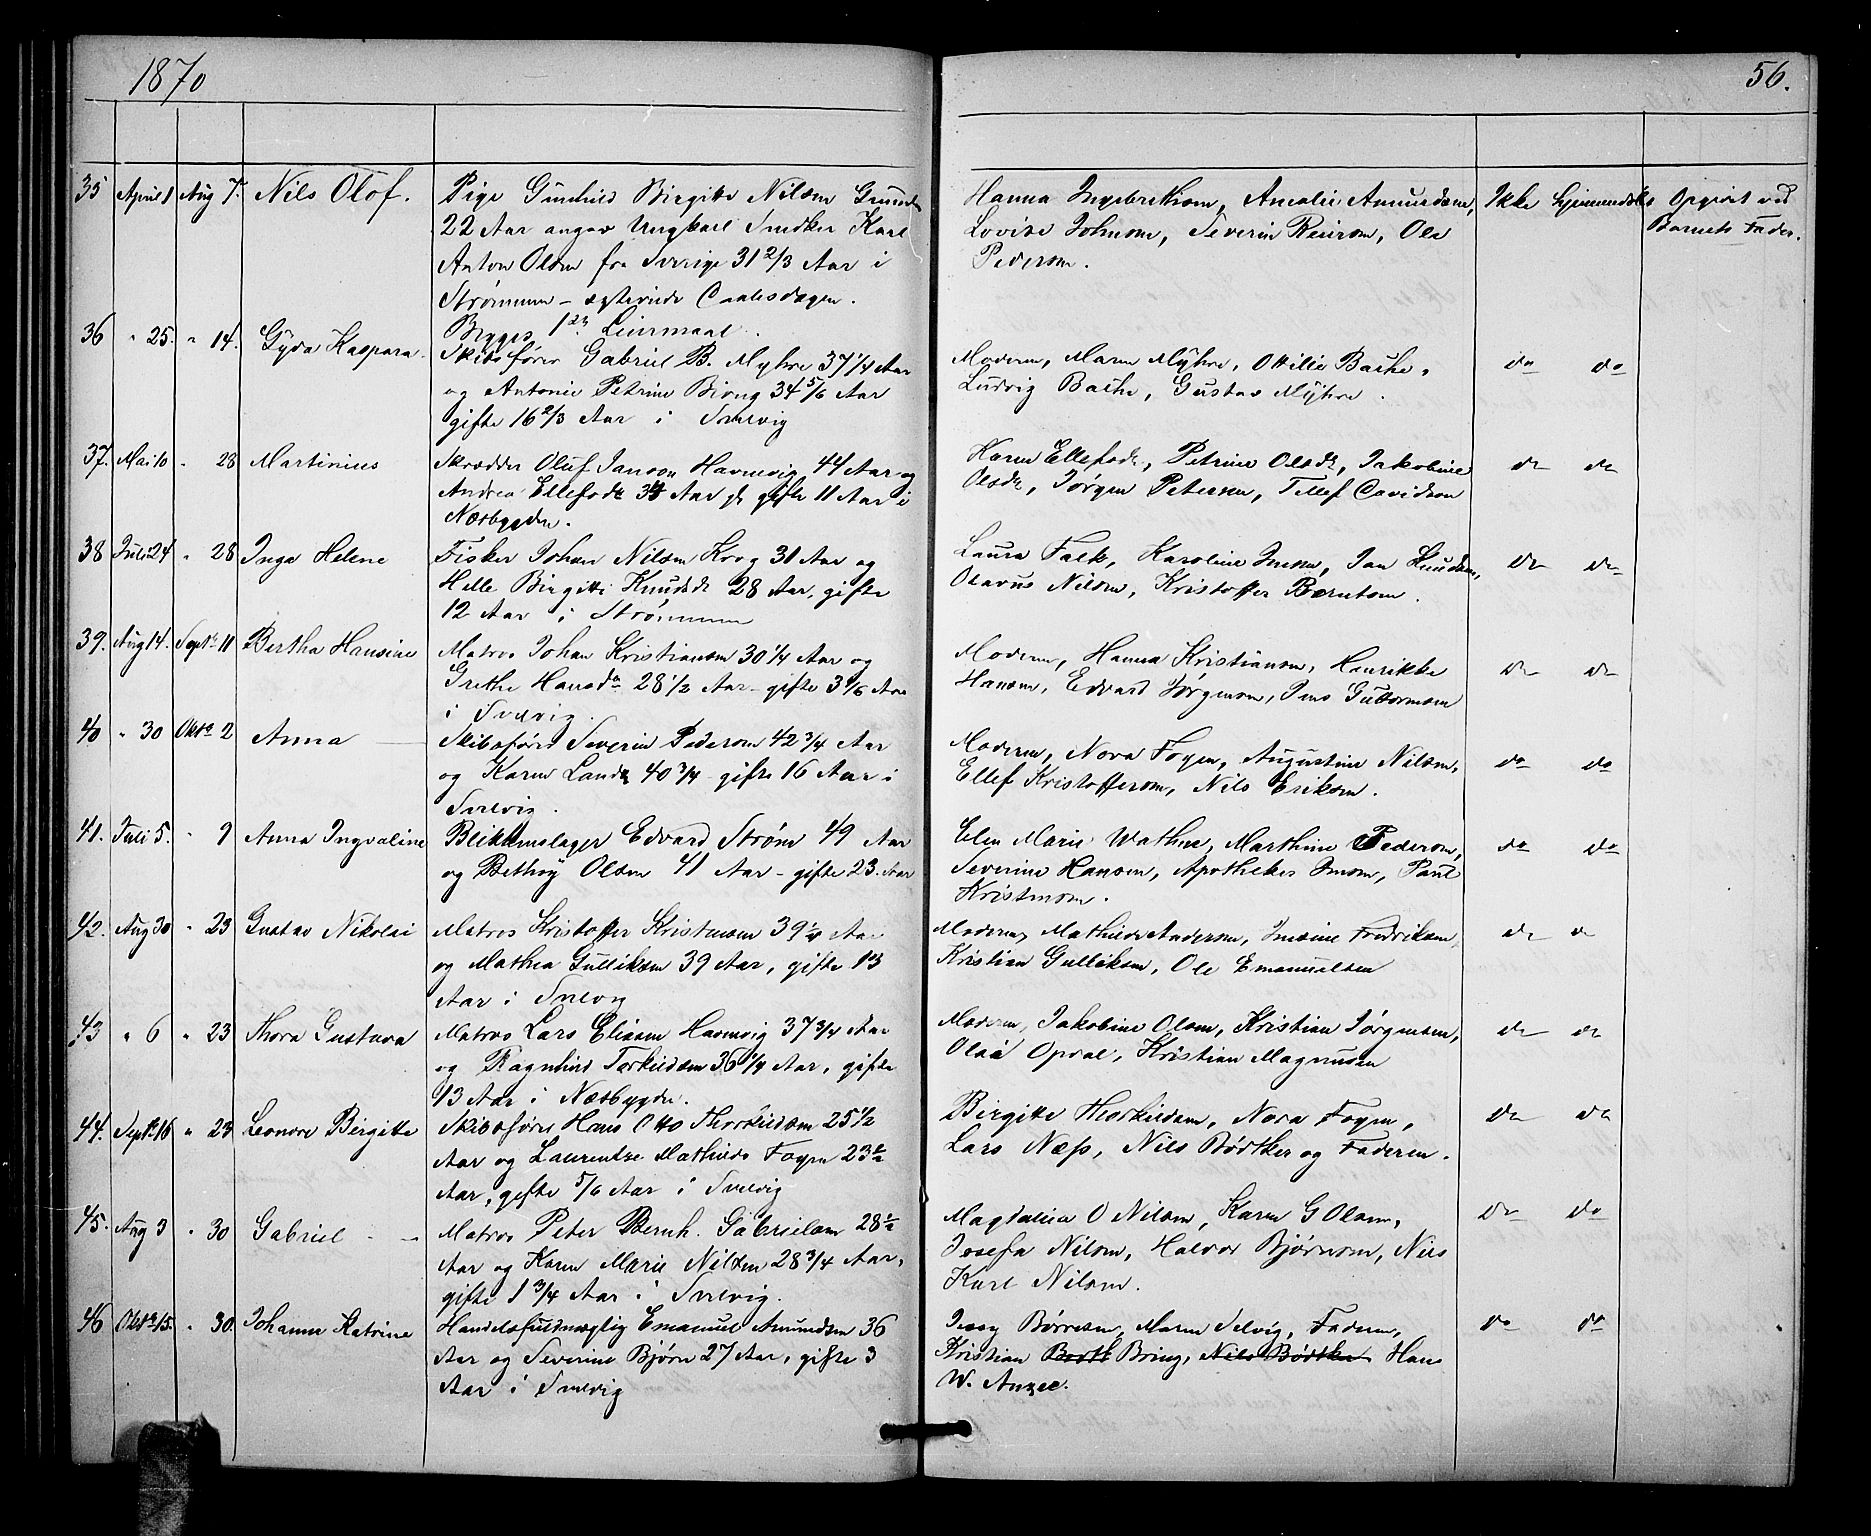 1870
56.
35 April 1 Aug 7. Nils Olof. Pige Gunhild Birgitte Nilsen Grunde
22 Aar angav Ungkarl Snedker Karl
Anton Olsen fra Sverige 31 2/3 Aar i
Strømmen
Begges 1ste Leiermaal.
Hanna Ingebrethsen, Amalie Amundsen,
Lovise Johnsen, Severin Reiersen, Ole
Pedersen.
Ikke hjemmedøbt Opgivet ved
Barnets Fader.
36 " 25. " 14. Gyda Kaspara. Skibsfører Gabriel B. Myhre 37 1/4 Aar
og Antonie Petrine Bivng 34 5/6 Aar
gifte 16 2/3 Aar i Svelvig
Moderen, Maren Myhre, Ottilie Bache,
Ludvig Bache, Gustav Myhre.
do do
37. Mai 10 " 28 Martinius Skrædder Oluf Janson Havnevig 44 Aar og
Andrea Ellefsdtr Aar gifte 11 Aar i
Næsbygden.
Karen Ellefsdtr, Petrine Olsdtr, Jakobine
Olsdtr, Jørgen Petersen, Tellef Davidsen
do do
38 Juli 24 " 28 Inga Helene Fisker Johan Nilsen Krog 31 Aar og
Helle Birgitte Knudsdtr 28 Aar, gifte
12 Aar i Strømmen
Laura Falk, Karoline Jensen, Jan Knudsen,
Olavus Nilsen, Kristoffer Berntsen.
do do
39. Aug 14. Septr 11 Bertha Hansine Matros Johan Kristiansen 30 1/4 Aar og
Grethe Hansdtr 28 1/2 Aar - gifte 3 1/6 Aar
i Svelvig.
Moderen, Hanna Kristiansen, Henrikke
Hansen, Edvard Jørgensen, Jens Guttormsen
do do
40 " 30 Oktbr 2 Anna Skibsfører Severin Pedersen 42 3/4 Aar
og Karen Lande 40 3/4 - gifte 16 Aar i
Svelvig.
Moderen, Nora Fogen, Augustine Nilsen,
Ellef Kristoffersen, Nils Eriksen.
do do
41. Juli 5. " 9 Anna Ingvaline Blikkenslager Edvard Strøm 49 Aar
og Bethsy Olsen 41 Aar - gifte 23 Aar
Elen Marie Wathne, Marthine Pedersen,
Severine Hansen, Apotheker Jensen, Paul
Kristensen.
do do
42. Aug 30 " 23 Gustav Nikolai Matros Kristoffer Kristensen 39 1/4 Aar
og Mathea Gulliksen 39 Aar, gifte 13
Aar i Svelvig
Moderen, Mathilde Andersen, Jensine Fredriksen,
Kristian Gulliksen, Ole Emanuelsen
do do
43 " 6 " 23 Thora Gustava Matros Lars Eliasen Havnevig 37 3/4 Aar
og Ragnhild Torkildsen 36 1/4 Aar, gifte
13 Aar i Næsbygden.
Moderen, Jakobine Olsen, Kristian Jørgensen,
Olai Opdal, Kristian Magnusen
do do
44. Septbr 16 " 23 Leonore Birgitte Skibsfører Hans Otto Thorkildsen 25 1/2
Aar og Laurentze Mathilde Fogen 23 1/2
Aar, gifte 5/6 Aar i Svelvig
Birgitte Thorkildsen, Nora Fogen,
Lars Næss, Nils Bödtker og Faderen.
do do
45. Aug 3 " 30 Gabriel Matros Peter Bernh. Gabrielsen 28 1/2
Aar og Karen Marie Nilsen 28 3/4 Aar,
gifte 1 3/4 Aar i Svelvig.
Magdalena O Nilsen, Karen G Olsen,
Josefa Nilsen, Halvor Bjørnsen, Nils
Karl Nilsen.
do do
46 Oktbr 15. " 30. Johanne Katrine Handelsfuldmægtig Emanuel Amundsen 36
Aar og Severine Bjørn 27 Aar, gifte 3
Aar i Svelvig
Jessy Børresen, Maren Selvig, Faderen,
Kristian Bring, Nils Bødtker Hans
W. Anzee.
do do